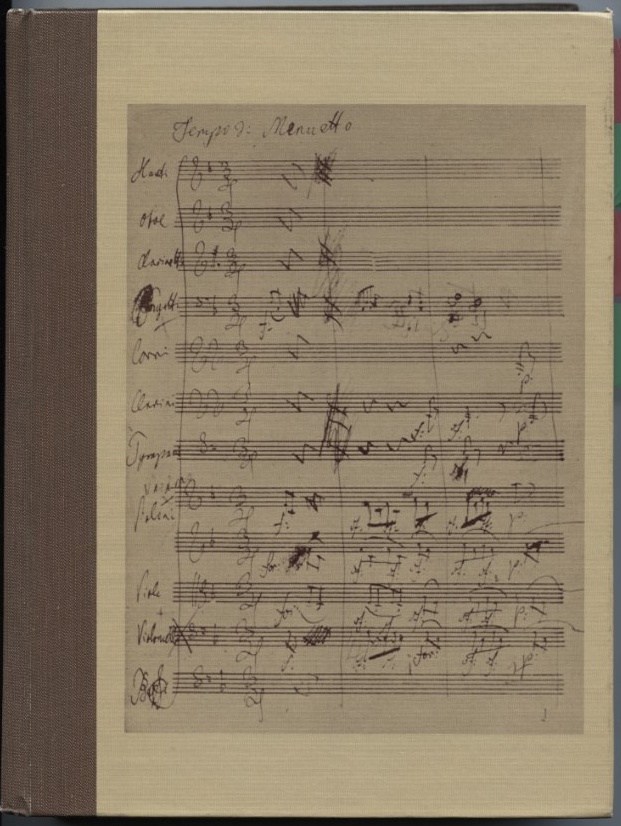 Tempo di Menuetto
Flauti
Oboe
Clarinetti
Fagotti
Corni
Clarini
Tympani
Violini
Viole
Violoncello
Bassi